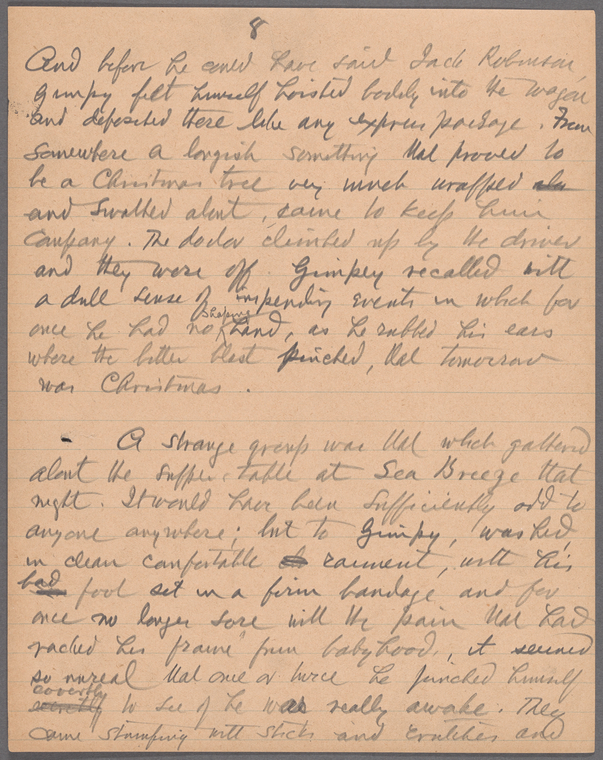 8
And before he could have said Jack Robinson,
Gimpy felt himself hoisted bodily into the wagon
and deposited there like any express package. From
somewhere a longish something that proved to
be a Christmas tree very much wrapped
and swathed about, came to keep him
company. The doctor climbed up by the driver
and they were off. Gimpey recalled with
a dull sense of impending events in which for
once he had no shaping hand, as he rubbed his ears
where the bitter blast pinched, that tomorrow
was Christmas.
A strange group was that which gathered
about the supper-table at Sea Breeze that
night. It would have been sufficiently odd to
anyone anywhere; but to Gimpy, washed,
in clean comfortable raiment, with his
bad foot set in a firm bandage and for
once no longer sore with the pain that had
racked his frame from babyhood, it seemed
so unreal that once or twice he pinched himself
covertly
secretly to see if he was really awake. They
came stumping with sticks and crutches and